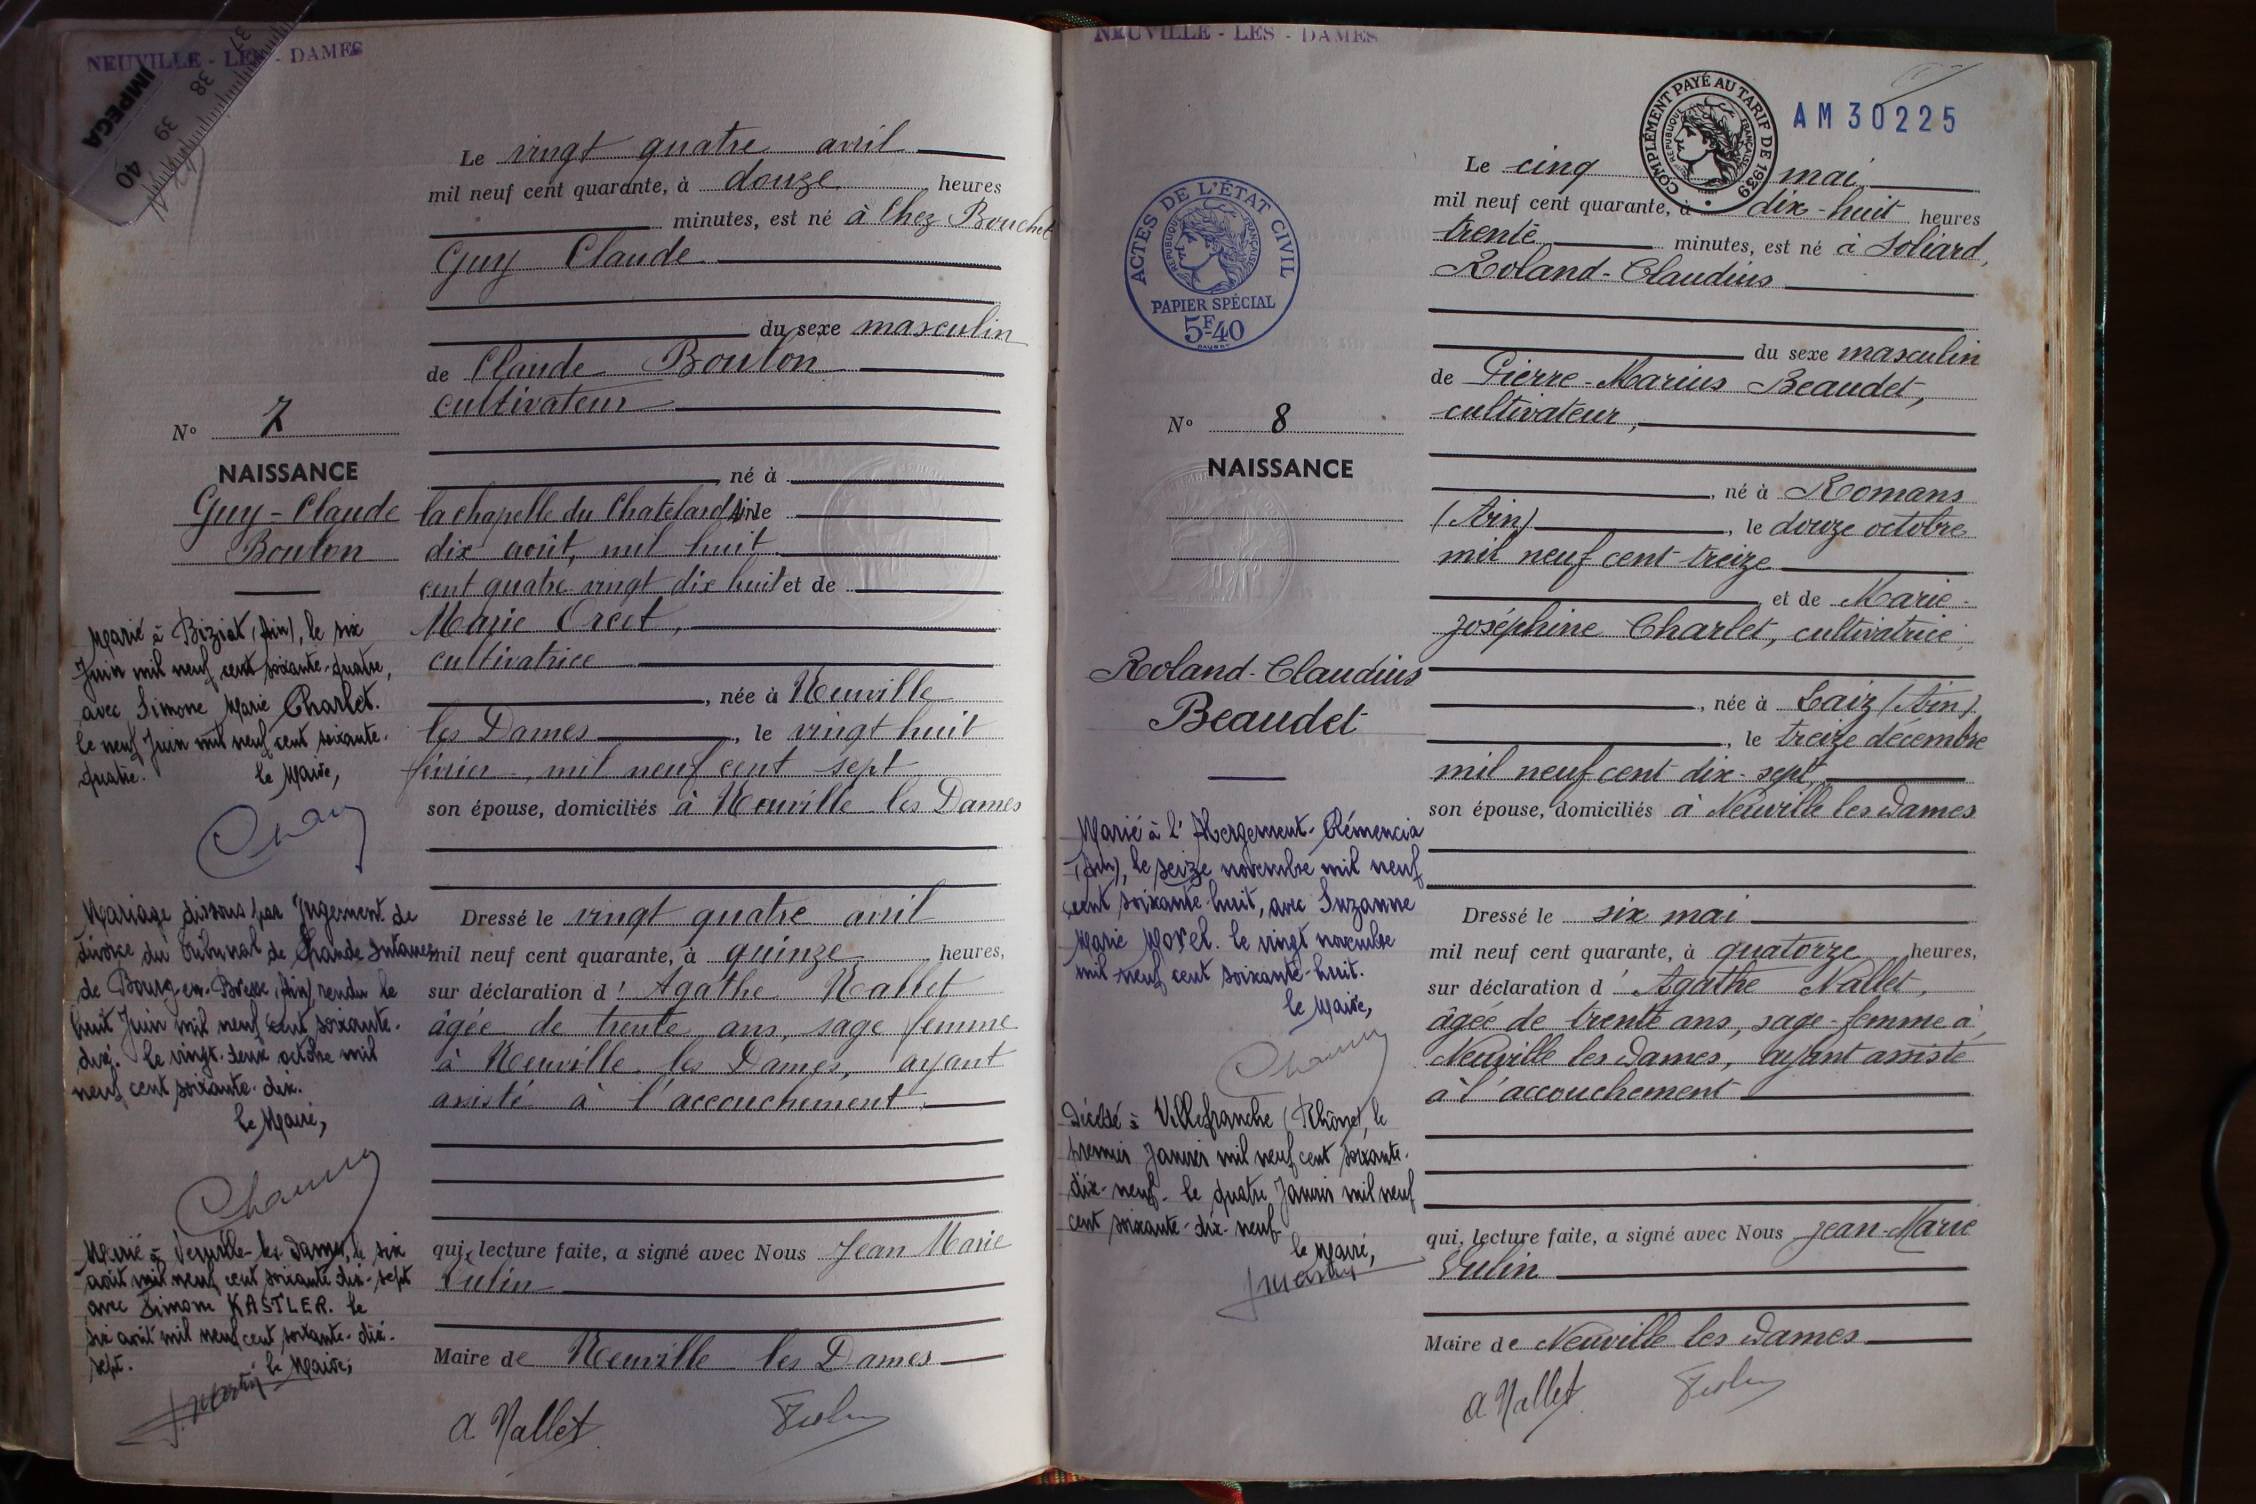 NEUVILLE - LES - DAMES
37
38
39
40
IMPEGA
Le vingt quatre avril
mil neuf cent quarante, à douze heures
minutes, est né à Chez Bouchet
Guy Claude
du sexe masculin
de Claude Boulon
cultivateur
né à
la chapelle du Chatelard Ain le
dix août, mil huit
cent quatre vingt dix huit et de
Marie Orcet,
cultivatrice
, née à Neuville
les Dames, le vingt huit
février, mil neuf cent sept
son épouse, domiciliés à Neuville les Dames
Dressé le vingt quatre avril
mil neuf cent quarante, à quinze heures,
sur déclaration d' Agathe Nallet
âgée de trente ans, sage femme
à Neuville les Dames, ayant
assisté à l'accouchement
qui, lecture faite, a signé avec Nous Jean Marie
Vulin
Maire de Neuville les Dames
A. Nallet
N° 7
NAISSANCE
Guy-Claude
Boulon
Marié à Biziat (Ain), le six
Juin mil neuf cent soixante-quatre,
avec Simone Marie Charlet.
le neuf Juin mil neuf cent soixante-
quatre.
le Maire,
Mariage dissous par Jugement de
divorce du Tribunal de Grande Instance
de Bourg-en-Bresse (Ain) rendu le
huit Juin mil neuf cent soixante-
dix. le vingt-deux octobre mil
neuf cent soixante-dix.
le Maire,
Marié à Neuville-les Dames, le six
août mil neuf cent soixante dix-sept
avec Simone KASTLER. le
six août mil neuf cent soixante-dix-
sept.
le Maire,
NEUVILLE - LES - DAMES
COMPLÉMENT PAYÉ AU TARIF DE 1939
RÉPUBLIQUE FRANÇAISE
AM30225
ACTES DE L'ÉTAT CIVIL
RÉPUBLIQUE FRANÇAISE
PAPIER SPÉCIAL
5F40
Le cinq mai
mil neuf cent quarante, à dix-huit heures
trente minutes, est né à Soliard,
Roland-Claudius
du sexe masculin
de Pierre-Marius Beaudet,
cultivateur,
, né à Romans
(Ain), le douze octobre
mil neuf cent treize
et de Marie-
Joséphine Charlet, cultivatrice,
, née à Laiz (Ain)
, le treize décembre
mil neuf cent dix-sept,
son épouse, domiciliés à Neuville les Dames
Dressé le six mai
mil neuf cent quarante, à quatorze heures,
sur déclaration d' Agathe Nallet,
âgée de trente ans, sage-femme à
Neuville les Dames, ayant assisté
à l'accouchement
qui, lecture faite, a signé avec Nous Jean-Marie
Vulin
Maire de Neuville les Dames
A. Nallet
N° 8
NAISSANCE
Roland-Claudius
Beaudet
Marié à l'Abergement-Clémencia
(Ain), le seize novembre mil neuf
cent soixante-huit, avec Suzanne
Marie Morel. le vingt novembre
mil neuf cent soixante-huit.
le Maire,
Décédé à Villefranche (Rhône), le
premier Janvier mil neuf cent soixante-
dix-neuf. le quatre Janvier mil neuf
cent soixante-dix-neuf
le Maire,